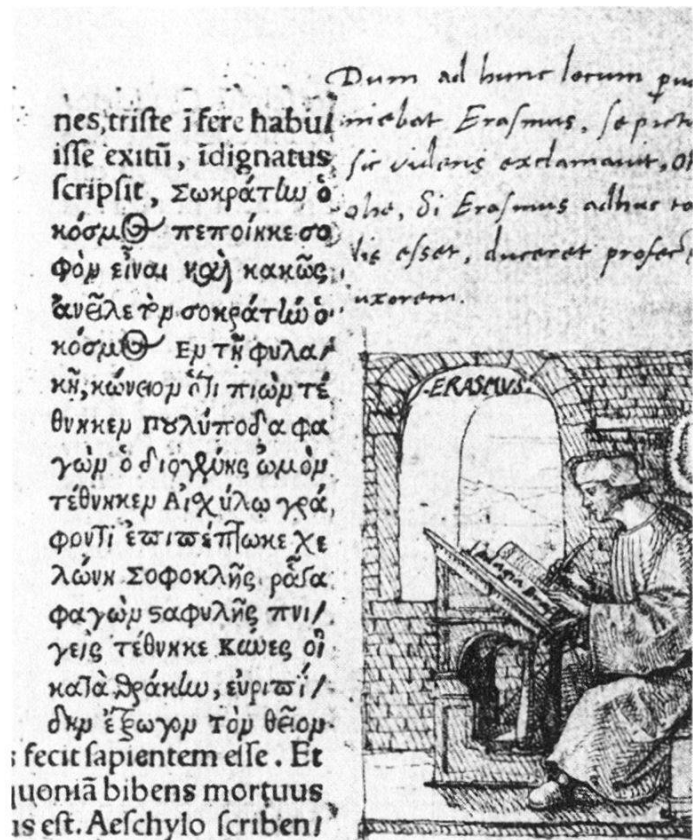 nes,triste ī fere habui/
isse exitū, īdignatus
scripsit, Σωκράτην ὁ
κόσμος πεποίηκε σο
φὸν εἶναι καὶ κακῶς
ἀνεῖλε τὸν σοκράτην ὁ
κόσμος Εν τῇ φυλα/
κῇ, κώνειον ὅτι πιὼν τέ
θνηκεν πουλύποδα φα
γὼν ὁ διογένης ὠμὸν
τέθνηκεν Αἰσχύλῳ γρά
φοντι ἐπιπέπτωκε χε
λώνη Σοφοκλῆς ῥᾶγα
φαγὼν σταφυλῆς πνι/
γεὶς τέθνηκε Κύνες οἳ
κατὰ θράκην, εὐριπί/
δην ἔτρωγον τὸν θεῖον
s fecit sapientem esse. Et
quoniā bibens mortuus
us est. Aeschylo scriben/
Dum ad hunc locum
niebat Erasmus, se pict
sic videns exclamauit, Oh
ohe, Si Erasmus adhuc ta
lis esset, duceret profect
uxorem.
ERASMVS.